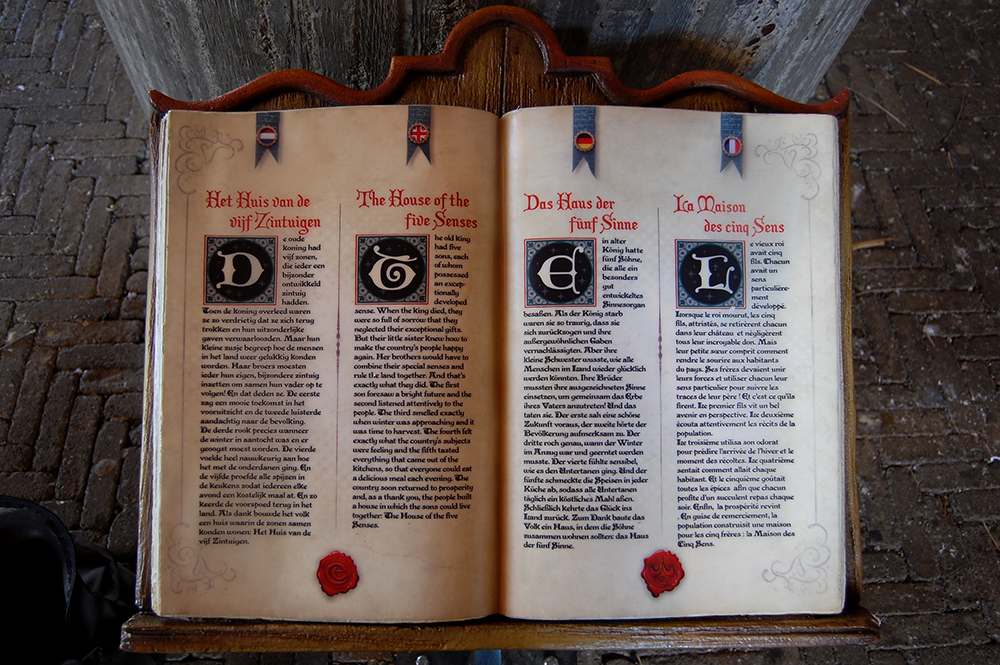 Het Huis van de
vijf Zintuigen
De oude
koning had
vijf zonen,
die ieder een
bijzonder
ontwikkeld
zintuig
hadden.
Toen de koning overleed waren
ze zo verdrietig dat ze zich terug
trokken en hun uitzonderlijke
gaven verwaarloosden. Maar hun
kleine zusje begreep hoe de mensen
in het land weer gelukkig konden
worden. Haar broers moesten
ieder hun eigen, bijzondere zintuig
inzetten om samen hun vader op te
volgen! En dat deden ze. De eerste
zag een mooie toekomst in het
vooruitzicht en de tweede luisterde
aandachtig naar de bevolking.
De derde rook precies wanneer
de winter in aantocht was en er
geoogst moest worden. De vierde
voelde heel nauwkeurig aan hoe
het met de onderdanen ging. En
de vijfde proefde alle spijzen in
de keukens zodat iedereen elke
avond een kostelijk maal at. En zo
keerde de voorspoed terug in het
land. Als dank bouwde het volk
een huis waarin de zonen samen
konden wonen: Het Huis van de
vijf Zintuigen.
The House of the
five Senses
The old king
had five
sons, each
of whom
possessed
an excep-
tionally
developed
sense. When the king died, they
were so full of sorrow that they
neglected their exceptional gifts.
But their little sister knew how to
make the country's people happy
again. Her brothers would have to
combine their special senses and
rule the land together. And that's
exactly what they did. The first
son foresaw a bright future and the
second listened attentively to the
people. The third smelled exactly
when winter was approaching and it
was time to harvest. The fourth felt
exactly what the country's subjects
were feeling and the fifth tasted
everything that came out of the
kitchens, so that everyone could eat
a delicious meal each evening. The
country soon returned to prosperity
and, as a thank you, the people built
a house in which the sons could live
together: The House of the five
Senses.
Das Haus der
fünf Sinne
Ein alter
König hatte
fünf Söhne,
die alle ein
besonders
gut
entwickeltes
Sinnesorgan
besaßen. Als der König starb
waren sie so traurig, dass sie
sich zurückzogen und ihre
außergewöhnlichen Gaben
vernachlässigten. Aber ihre
kleine Schwester wusste, wie alle
Menschen im Land wieder glücklich
werden könnten. Ihre Brüder
mussten ihre ausgezeichneten Sinne
einsetzen, um gemeinsam das Erbe
ihres Vaters anzutreten! Und das
taten sie. Der erste sah eine schöne
Zukunft voraus, der zweite hörte der
Bevölkerung aufmerksam zu. Der
dritte roch genau, wann der Winter
im Anzug war und geerntet werden
musste. Der vierte fühlte sensibel,
wie es den Untertanen ging. Und der
fünfte schmeckte die Speisen in jeder
Küche ab, sodass alle Untertanen
täglich ein köstliches Mahl aßen.
Schließlich kehrte das Glück ins
Land zurück. Zum Dank baute das
Volk ein Haus, in dem die Söhne
zusammen wohnen sollten: das Haus
der fünf Sinne.
La Maison
des cinq Sens
Le vieux roi
avait cinq
fils. Chacun
avait un
sens
particulière-
ment
développé.
Lorsque le roi mourut, les cinq
fils, attristés, se retirèrent chacun
dans leur château et négligèrent
tous leur incroyable don. Mais
leur petite sœur comprit comment
rendre le sourire aux habitants
du pays. Ses frères devaient unir
leurs forces et utiliser chacun leur
sens particulier pour suivre les
traces de leur père ! Et c'est ce qu'ils
firent. Le premier fils vit un bel
avenir en perspective. Le deuxième
écouta attentivement les récits de la
population.
Le troisième utilisa son odorat
pour prédire l'arrivée de l'hiver et le
moment des récoltes. Le quatrième
sentait comment allait chaque
habitant. Et le cinquième goûtait
toutes les épices afin que chacun
profite d'un succulent repas chaque
soir. Enfin, la prospérité revint
. En guise de remerciement, la
population construisit une maison
pour les cinq frères : la Maison des
Cinq Sens.